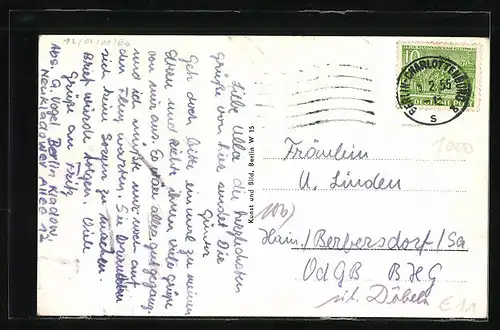 12/01/1100
Liebe Ulla die herzlichsten
Grüße von hier sendet Dir
Günter
Geh doch bitte einmal zu meinen
Eltern und richte ihnen viele Grüße
von mir aus. Es war alles gut gegangen
und ich müßte nur noch auf
den Flug warten. Sie brauchten
sich keine Sorgen zu machen.
Brief würde folgen. Viele
Grüße an Fritz
Abs. G. Voge Berlin Kladow,
Neukladower Allee 12
Kunst und Bild, Berlin W 35
10
BERLIN-CHARLOTTENBURG
2.55
-12
s
Fräulein
U. Linden
Hain/Berbersdorf/Sa
OdGB BHG
1000
E11